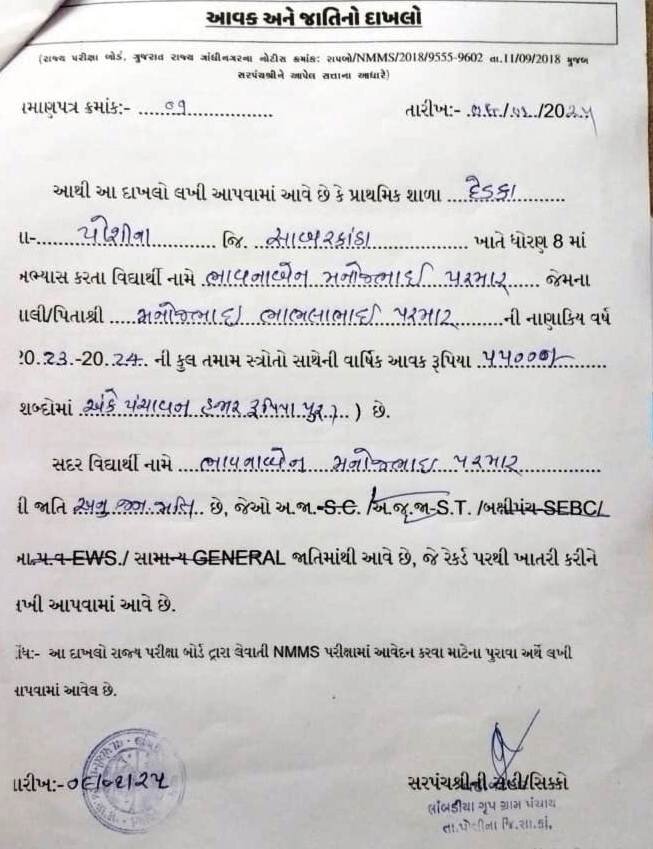 આવક અને જાતિનો દાખલો
(રાજ્ય પરીક્ષા બોર્ડ, ગુજરાત રાજ્ય ગાંધીનગરના નોટીસ ક્રમાંક: રાપબો/NMMS/2018/9555-9602 તા.11/09/2018 મુજબ
સરપંચશ્રીને આપેલ સત્તાના આધારે)
માણપત્ર ક્રમાંક:- ....૦૧................ તારીખ:- ./.../2025
આથી આ દાખલો લખી આપવામાં આવે છે કે પ્રાથમિક શાળા ...દેડકા..........
ા-......પોશીના.......... જિ. ..સાબરકાંઠા.............. ખાતે ધોરણ 8 માં
ભ્યાસ કરતા વિદ્યાર્થી નામે ..ભાવનાબેન મનોજભાઈ પરમાર.... જેમના
ાલી/પિતાશ્રી ....મનોજભાઈ ભાભલાભાઈ પરમાર.......ની નાણાકિય વર્ષ
20.23.-20.24. ની કુલ તમામ સ્ત્રોતો સાથેની વાર્ષિક આવક રૂપિયા .૫૫૦૦૦/-
શબ્દોમાં .અંકે પંચાવન હજાર રૂપિયા પુરા..) છે.
સદર વિદ્યાર્થી નામે ...ભાવનાબેન મનોજભાઈ પરમાર............
ી જાતિ .અનુ.જન.જાતિ.. છે, જેઓ અ.જા.-S.C. /અ.જૂ.જા-S.T. /બક્ષીપંચ-SEBC/
આ.પ.વ-EWS./ સામાન્ય GENERAL જાતિમાંથી આવે છે, જે રેકર્ડ પરથી ખાતરી કરીને
ખી આપવામાં આવે છે.
ોંધ:- આ દાખલો રાજ્ય પરીક્ષા બોર્ડ દ્વારા લેવાતી NMMS પરીક્ષામાં આવેદન કરવા માટેના પુરાવા અર્થે લખી
ાપવામાં આવેલ છે.
ારીખ:-
સરપંચશ્રીની સહી/સિક્કો
લાંબડીયા ગૃપ ગ્રામ પંચાય
તા.પોશીના જિ.સા.કાં.